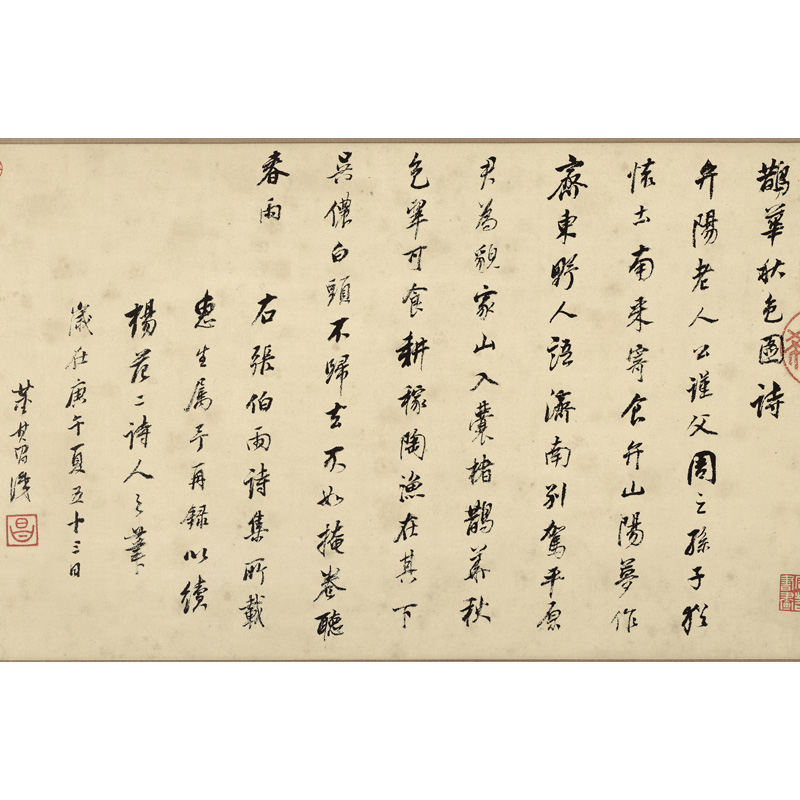 鵲華秋色圖詩
弁陽老人公謹父周之孫子猶
懷土南来寄食弁山陽夢作
齊東野人語濟南別駕平原
君為貌家山入囊楮鵲華秋
色翠可食耕稼陶漁在其下
吳儂白頭不歸去不如掩卷聽
春雨
右張伯雨詩集所載
惠生属予再録以續
楊范二詩人之筆
歲在庚午夏五十三日
董其昌識
昌